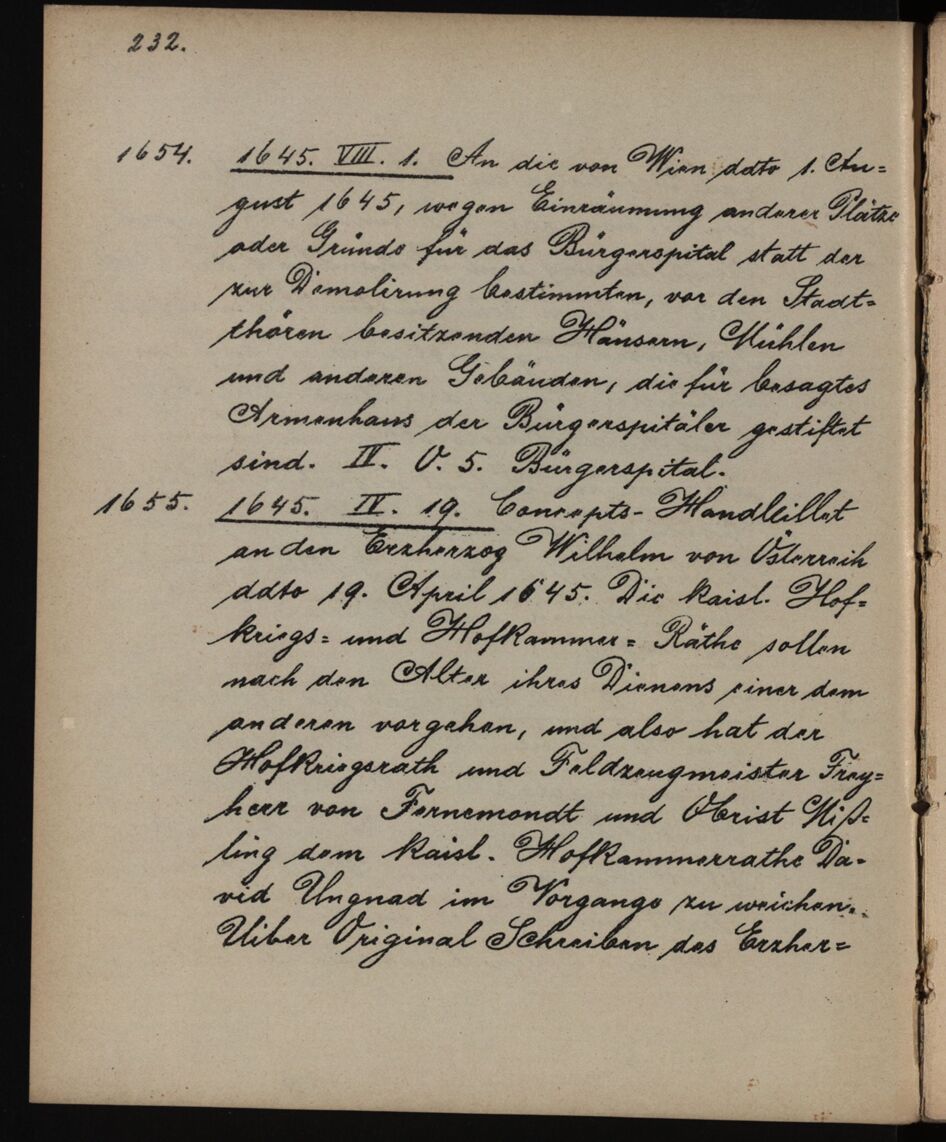 232.
1654. 1645. VIII. 1. An die von Wien ddto 1. Au=
gust 1645, wegen Einräumung anderer Plätze
oder Gründe für das Bürgerspital statt der
zur Demolirung bestimmten, vor den Stadt=
thören besitzenden Häusern, Mühlen
und anderen Gebäuden, die für besagtes
Armenhaus der Bürgerspitäler gestiftet
sind. IV. O. 5. Bürgerspital.
1655. 1645. IV. 19. Concepts-Handbillet
an den Erzherzog Wilhelm von Österreich
ddto 19. April 1645. Die kaisl. Hof=
kriegs= und Hofkammer=Räthe sollen
nach den Alter ihres Dienens einer dem
anderen vorgehen, und also hat der
Hofkriegsrath und Feldzeugmeister Frey=
herr von Fernemondt und Obrist Miß=
ling dem kaisl. Hofkammerrathe Da=
vid Ungnad im Vorgange zu weichen.
Uiber Original Schreiben des Erzher=